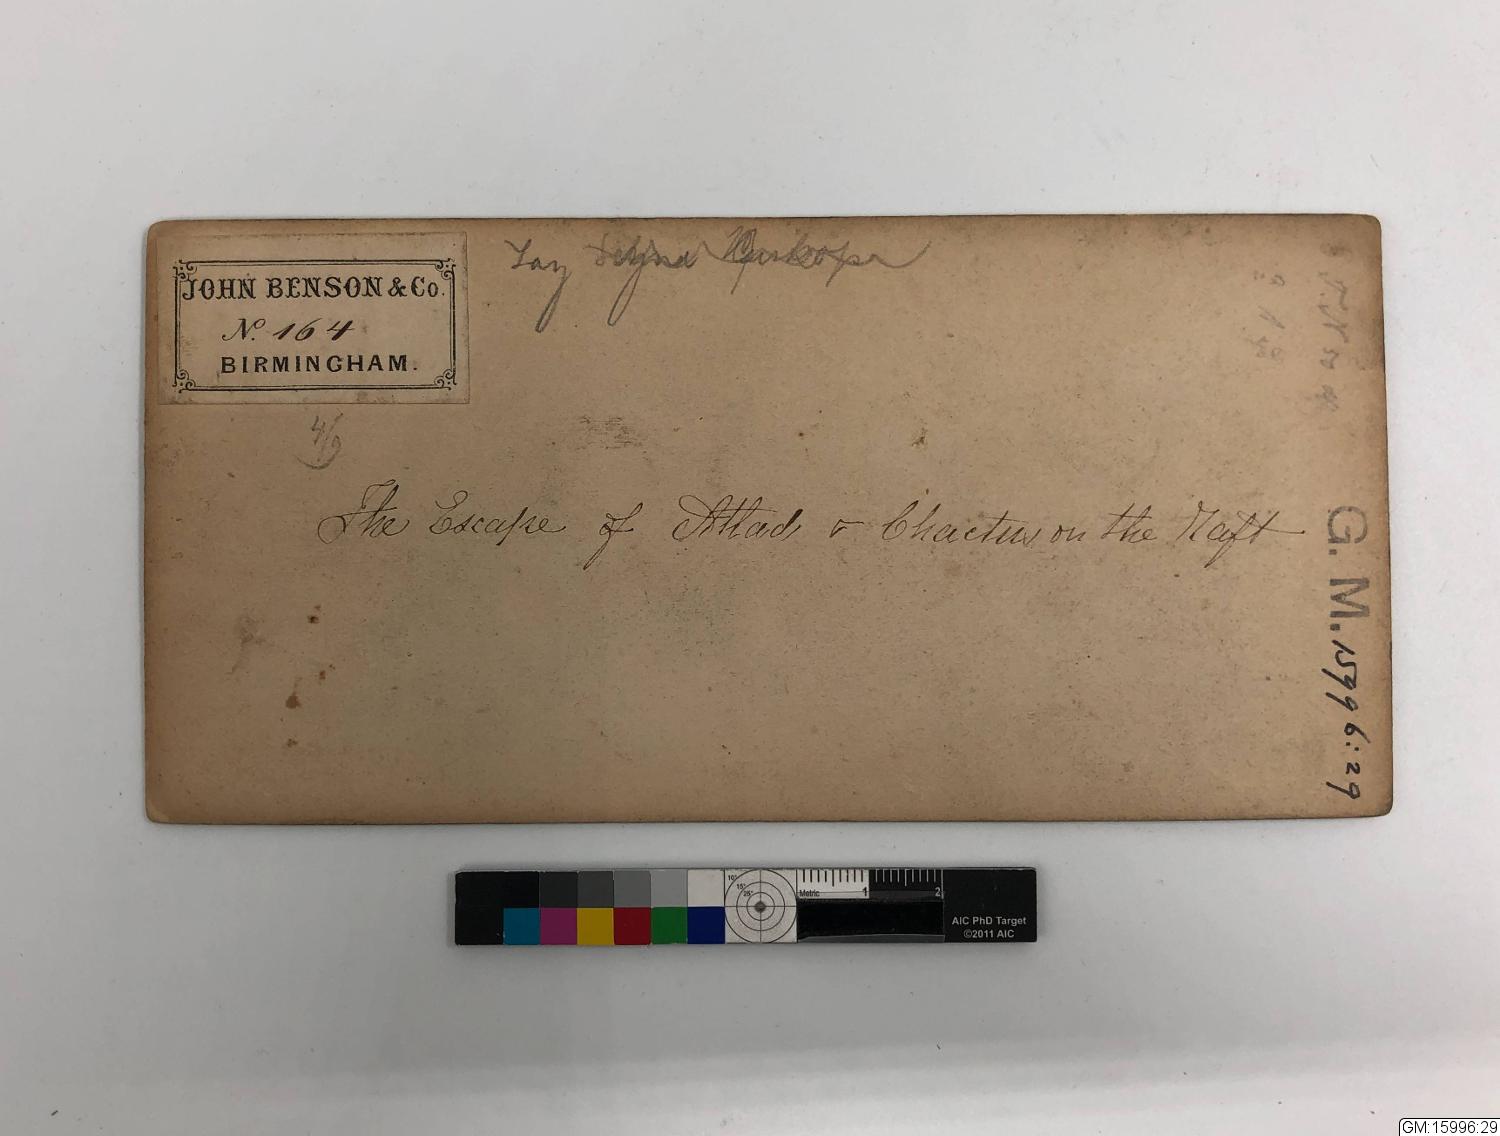 JOHN BENSON & Co.
No. 164
BIRMINGHAM.
4/9
The Escape of Attads & Chactus on the Raft
G. M. 15996:29
Metric 1 2
10° 15° 25°
AIC PhD Target
©2011 AIC
GM:15996:29